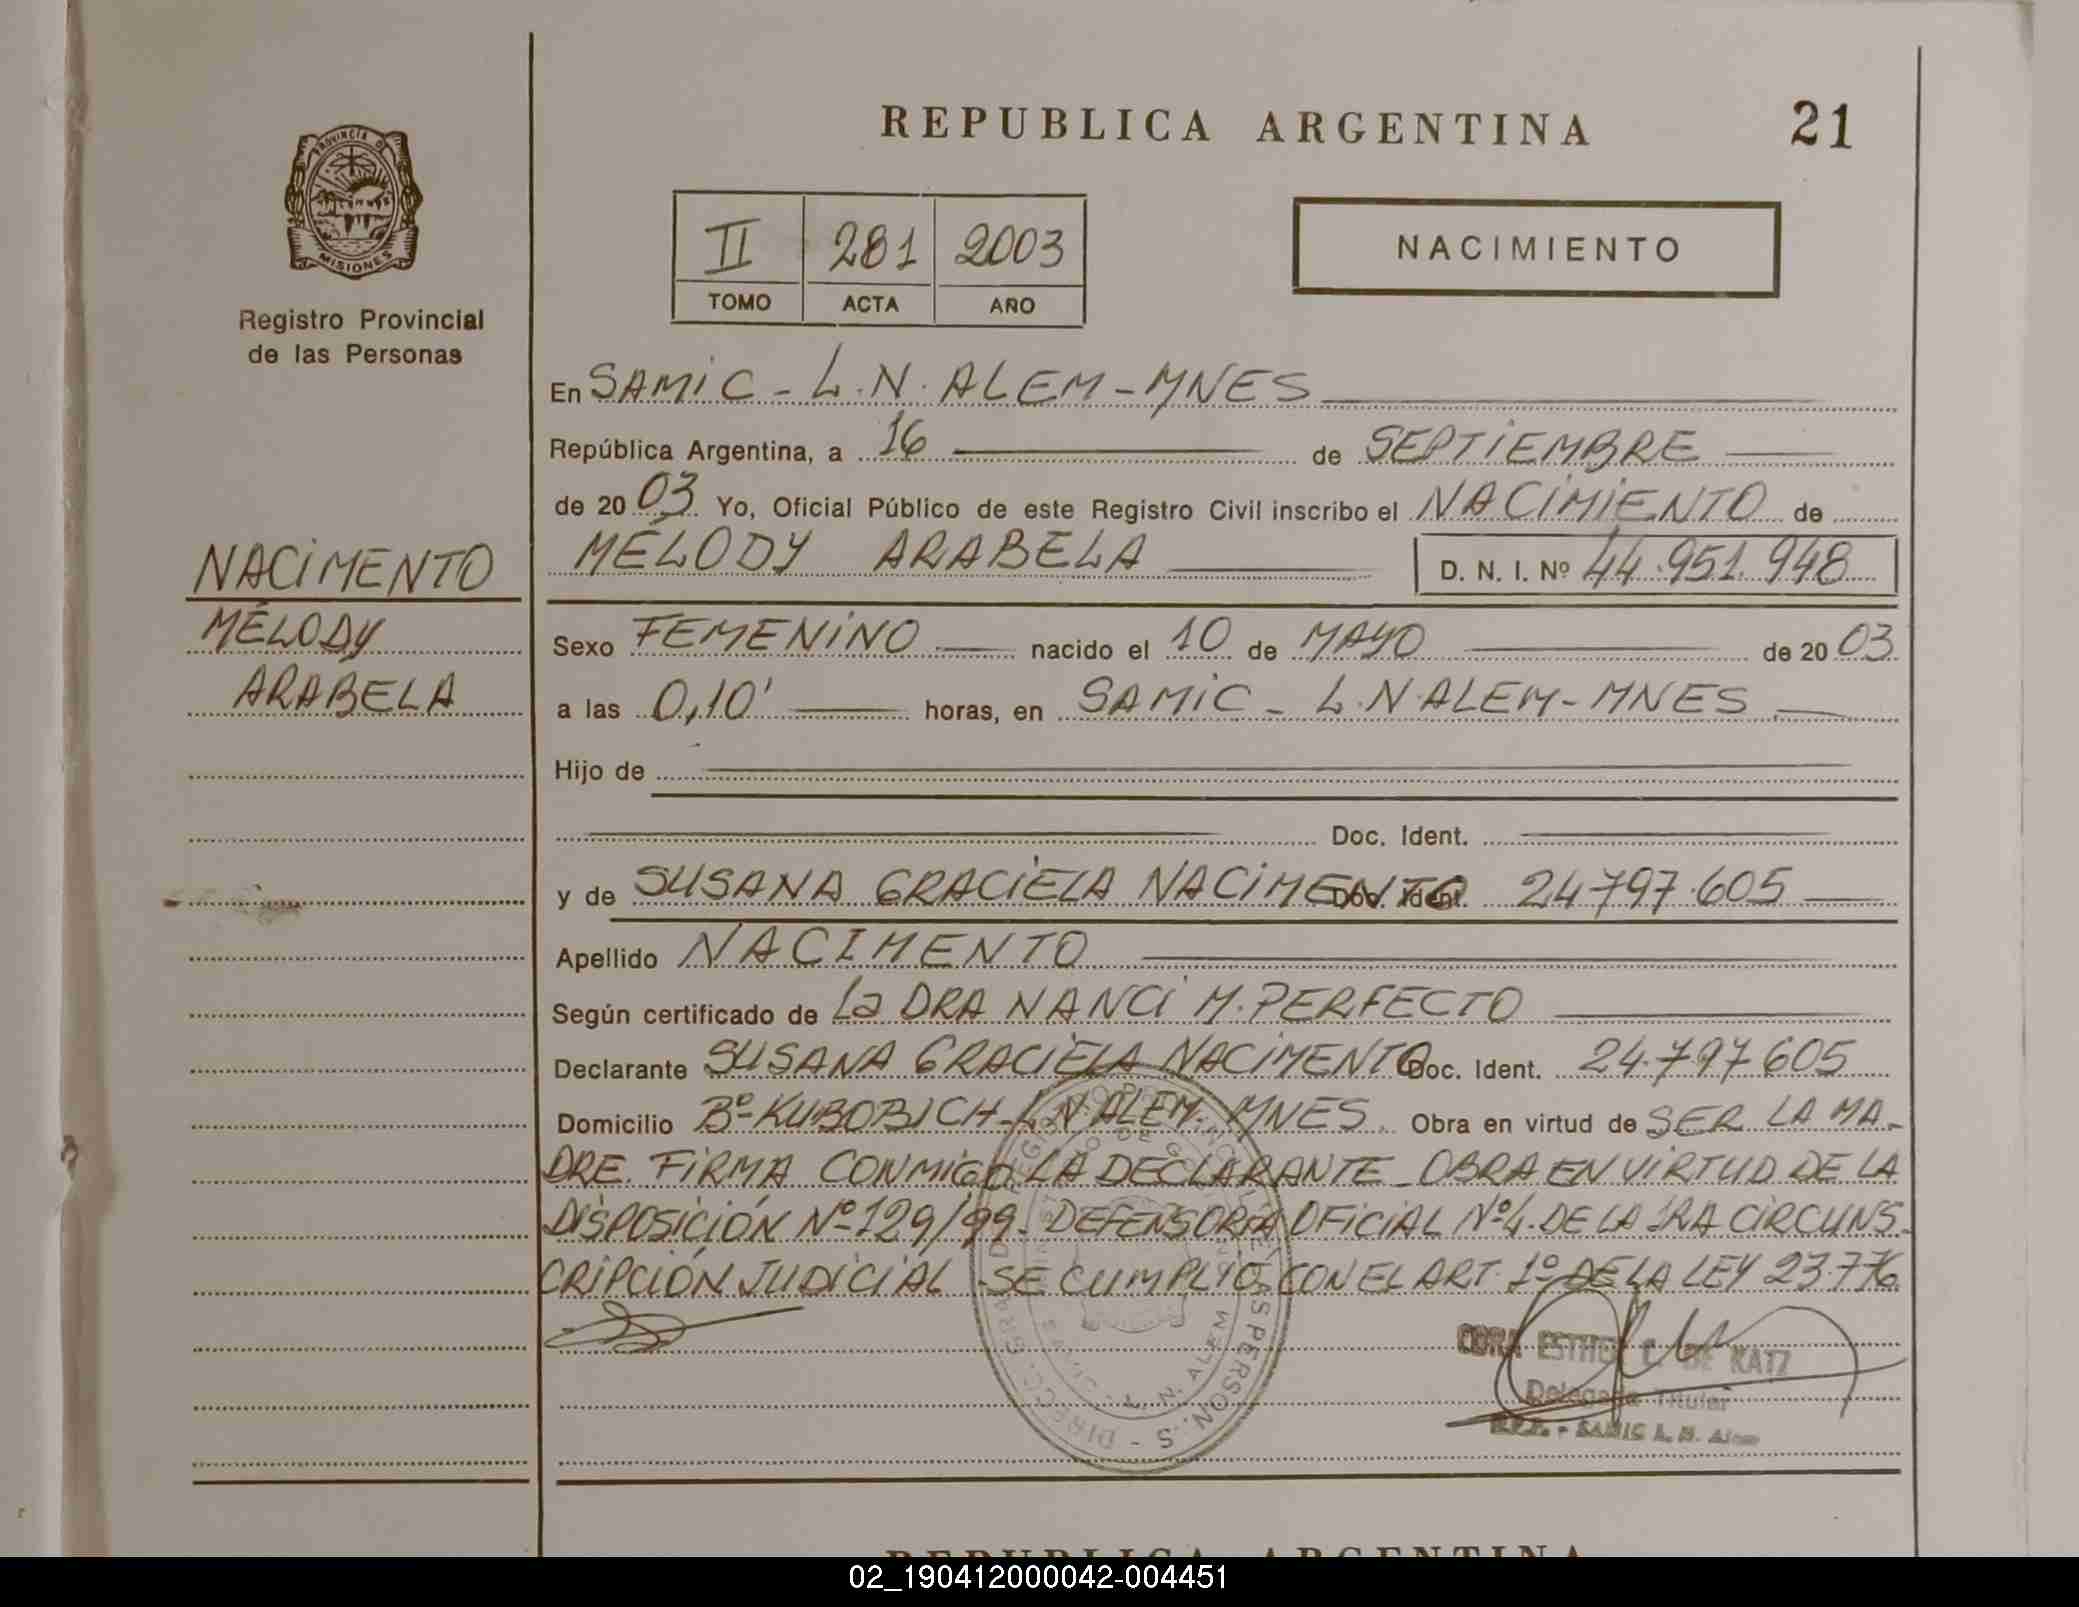 REPUBLICA ARGENTINA
21
PROVINCIA D
MISIONES
Registro Provincial
de las Personas
II 281 2003
TOMO ACTA AÑO
NACIMIENTO
En SAMIC - L.N. ALEM - MNES
República Argentina, a 16 de SEPTIEMBRE
de 2003 Yo, Oficial Público de este Registro Civil inscribo el NACIMIENTO de
MÉLODY ARABELA D. N. I. Nº 44.951.948
NACIMENTO
MÉLODY
ARABELA
Sexo FEMENINO nacido el 10 de MAYO de 2003
a las 0,10' horas, en SAMIC - L.N. ALEM - MNES
Hijo de
Doc. Ident.
y de SUSANA GRACIELA NACIMENTO Doc. Ident. 24.797.605
Apellido NACIMENTO
Según certificado de La DRA NANCI M. PERFECTO
Declarante SUSANA GRACIELA NACIMENTO Doc. Ident. 24.797.605
Domicilio Bº- KUBOBICH - L.N. ALEM - MNES. Obra en virtud de SER LA MA-
DRE. FIRMA CONMIGO LA DECLARANTE - OBRA EN VIRTUD DE LA
DISPOSICIÓN Nº 129/99 - DEFENSORIA OFICIAL Nº 4. DE LA 1RA CIRCUNS-
CRIPCIÓN JUDICIAL - SE CUMPLIÓ CON EL ART. 1º DE LA LEY 23.776
ESTHER DE KATZ
Delegada Titular
SAMIC L. N. Alem
L. N. ALEM
02_190412000042-004451